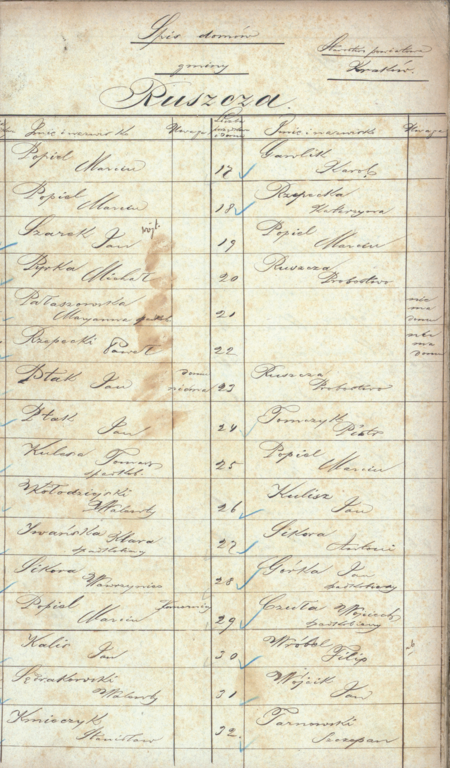 Spis domów
gminy
Ruszcza.
Kraków.
Imię i nazwisko Uwaga Liczba Imię i nazwisko Uwaga
Popiel
Marcin
17 Gawlik
Karol
Popiel
Marcin
18 Rzepecka
Katarzyna
Szarek Jan wójt
19 Popiel
Marcin
Pyrka
Michał
20 Ruszcza
Probostwo
Pałaszowska
Maryanna
21 nie
ma
domu
Rzepecki
Paweł
22 nie
ma
domu
Ptak Jan domu
niema
23 Ruszcza
Probostwo
Ptak
Jan
24 Tomczyk
Piotr
Kulesa Tomasz
spadkob.
25 Popiel
Marcin
Kołodziejski
Walenty
26 Kulisz
Jan
Iwańska Klara
spadkobiercy
27 Sikora
Antoni
Sikora
Wawrzyniec
28 Górka Jan
spadkobiercy
Popiel
Marcin
29 Czuła Wojciech
spadkobiercy
Kalis
Jan
30 Wróbel
Filip
Walenty
31 Wójcik
Jan
Kmieczyk
Stanisław
32. Tarnowski
Szczepan